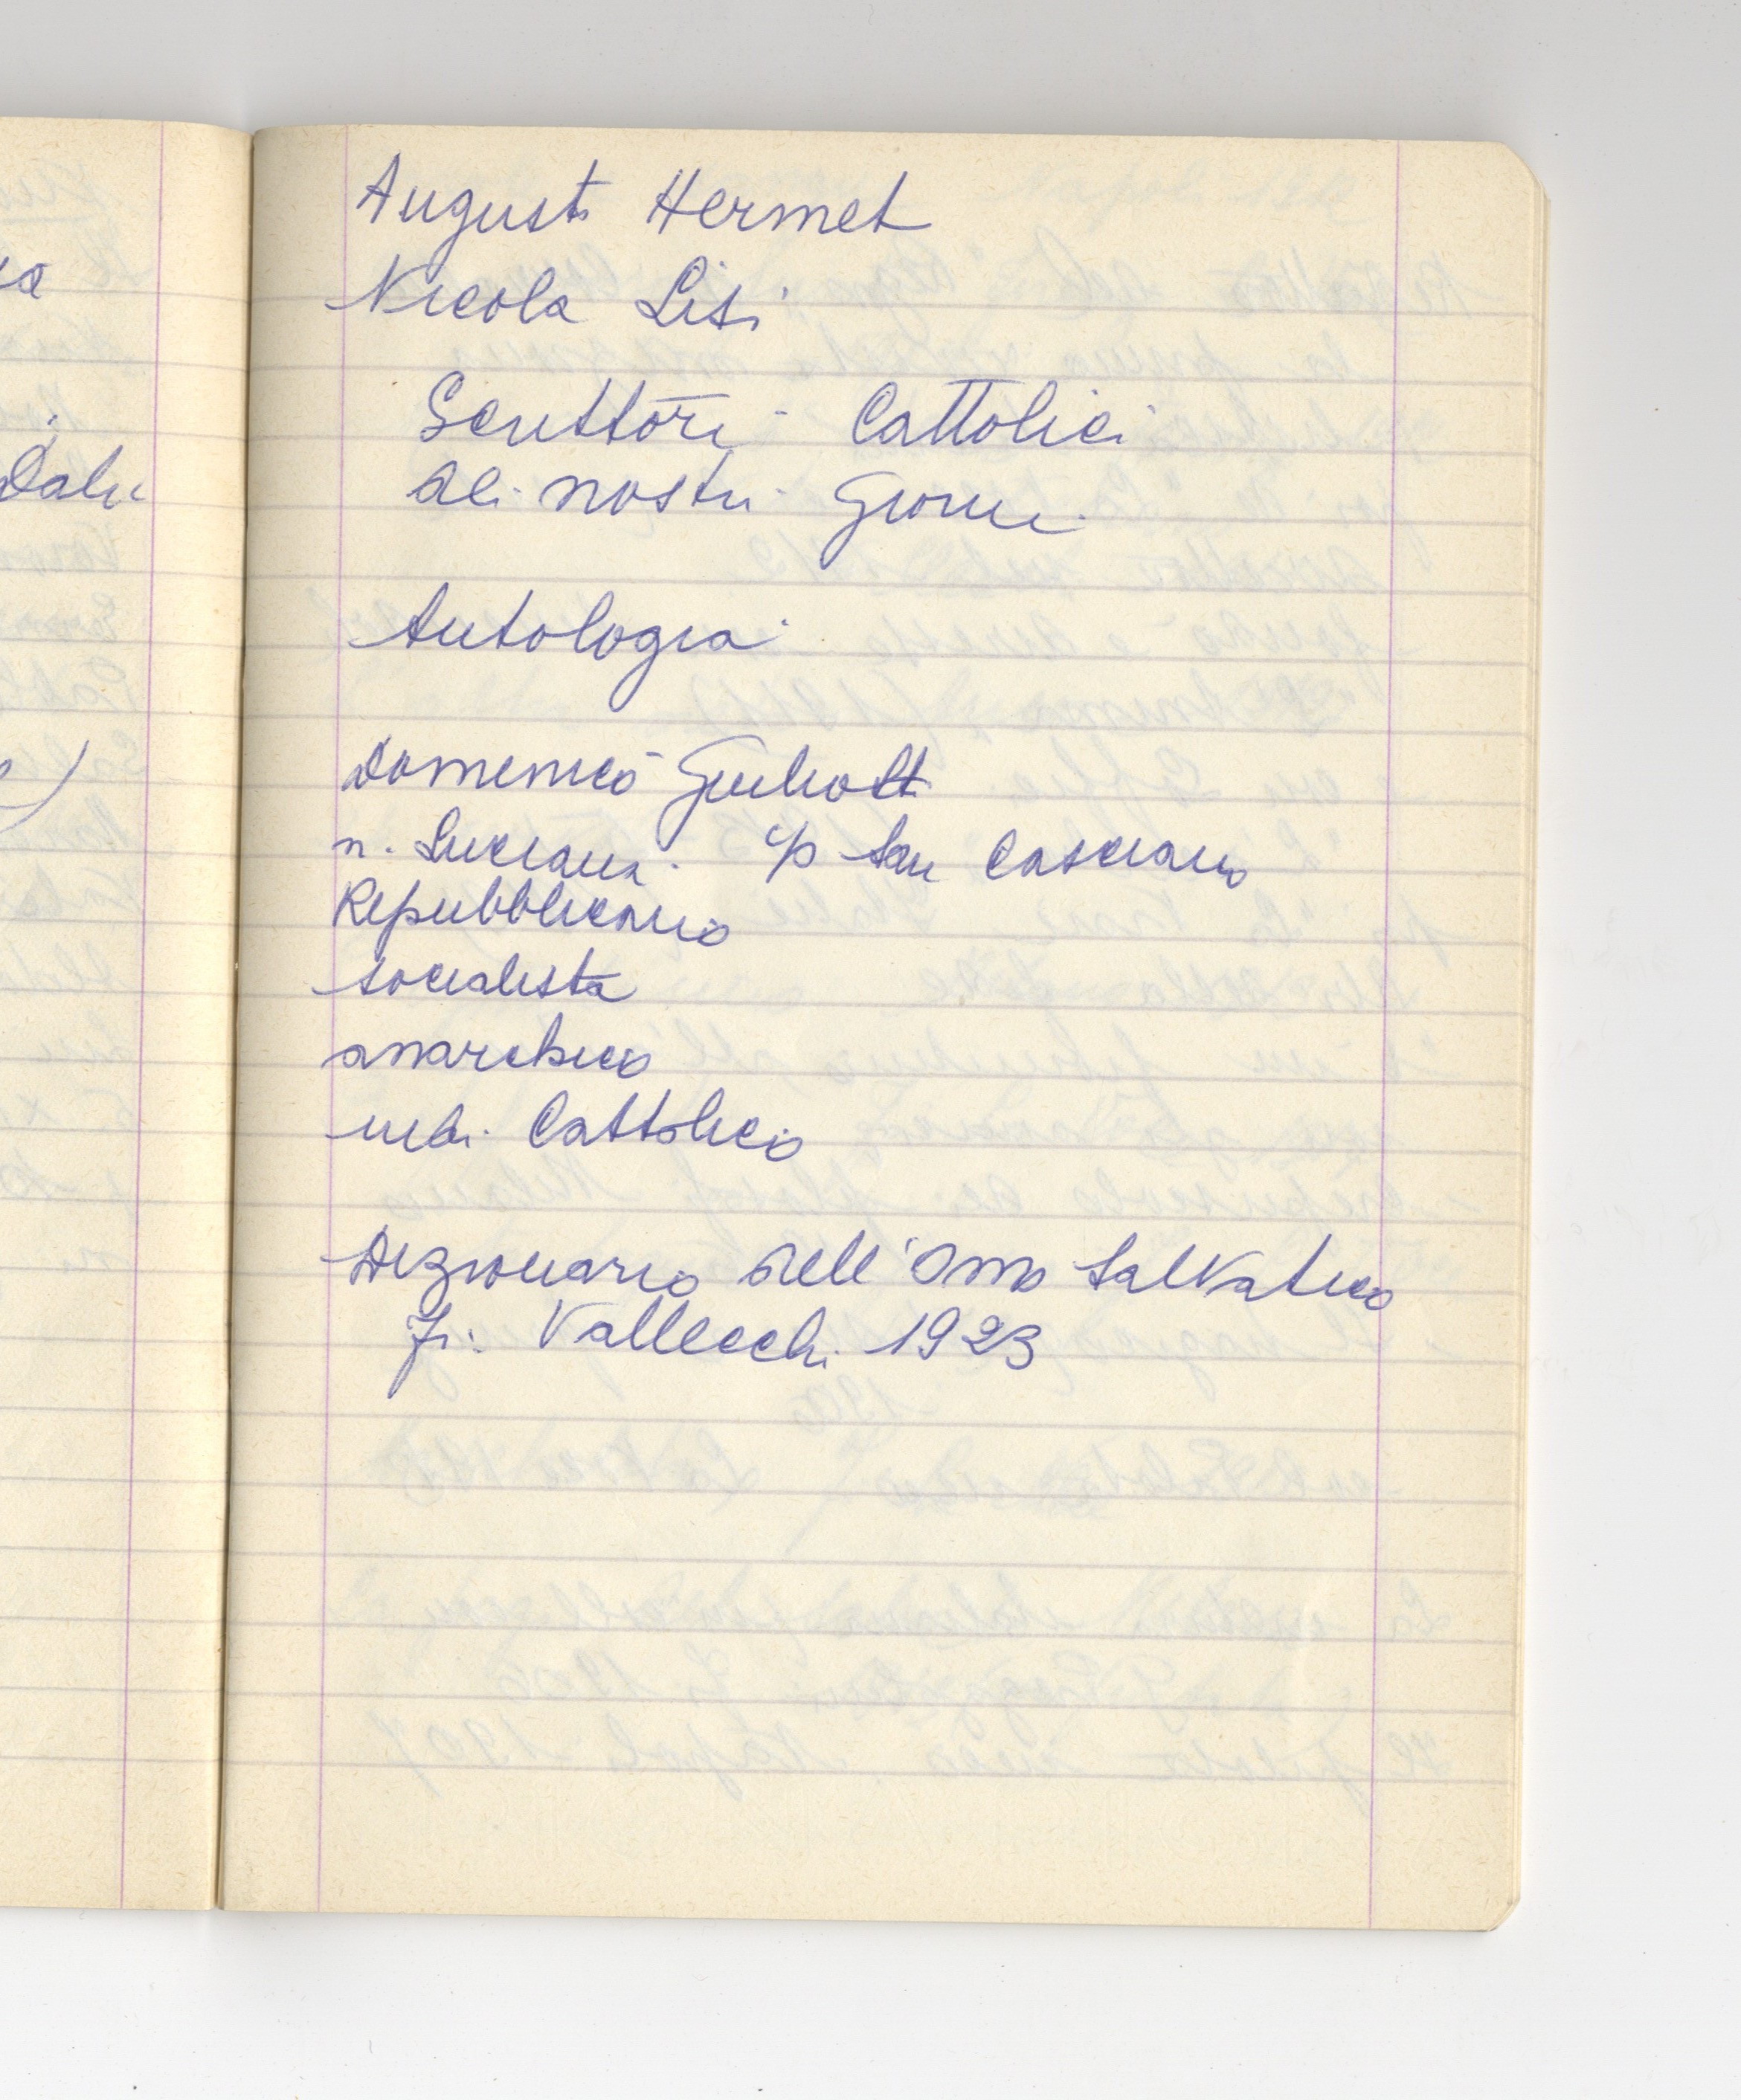 Augusto Hermet
Nicola Lisi
Scrittori Cattolici
dei nostri Giorni
Antologia
Domenico Giuliotti
n. Luciana c/o San Casciano
Repubblicano
socialista
anarchico
indi Cattolico
Dizionario dell'Omo Salvatico
Fi. Vallecchi 1923